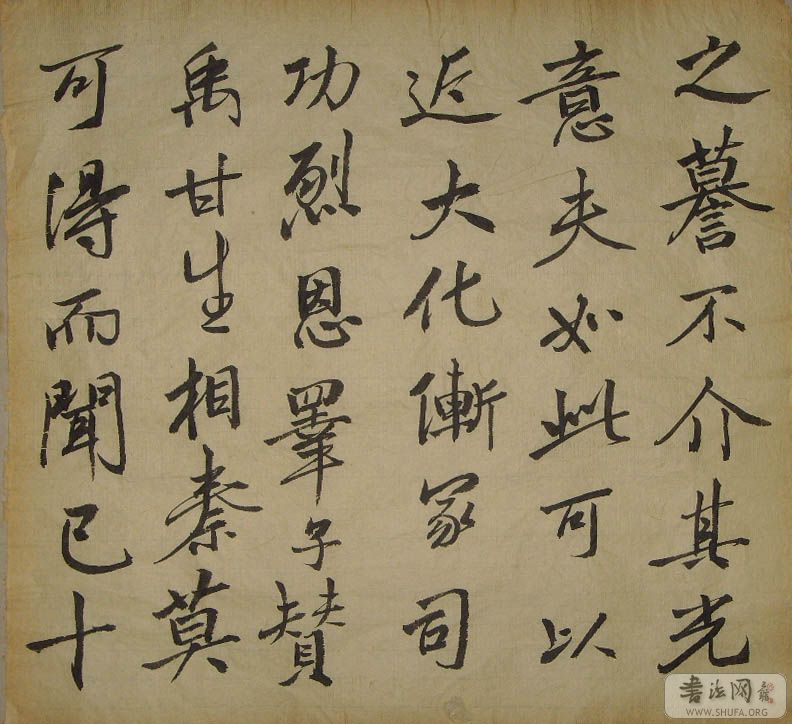 之謩不介其光
意夫如此可以
近大化漸冢司
功烈恩睪子賛
禹甘生相秦莫
可得而聞已十
書法网
WWW.SHUFA.ORG